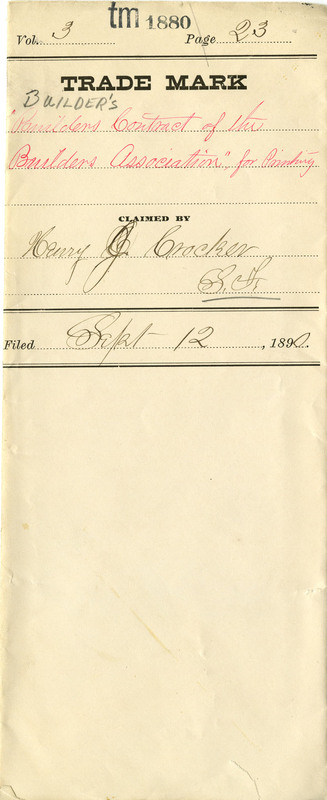 tm 1880
Vol. 3 Page 23
TRADE MARK
BUILDER'S
"Builders Contract of the
Builders Association" for Printing
CLAIMED BY
Henry J. Crocker
S.F.
Filed Sept 12, 1890.